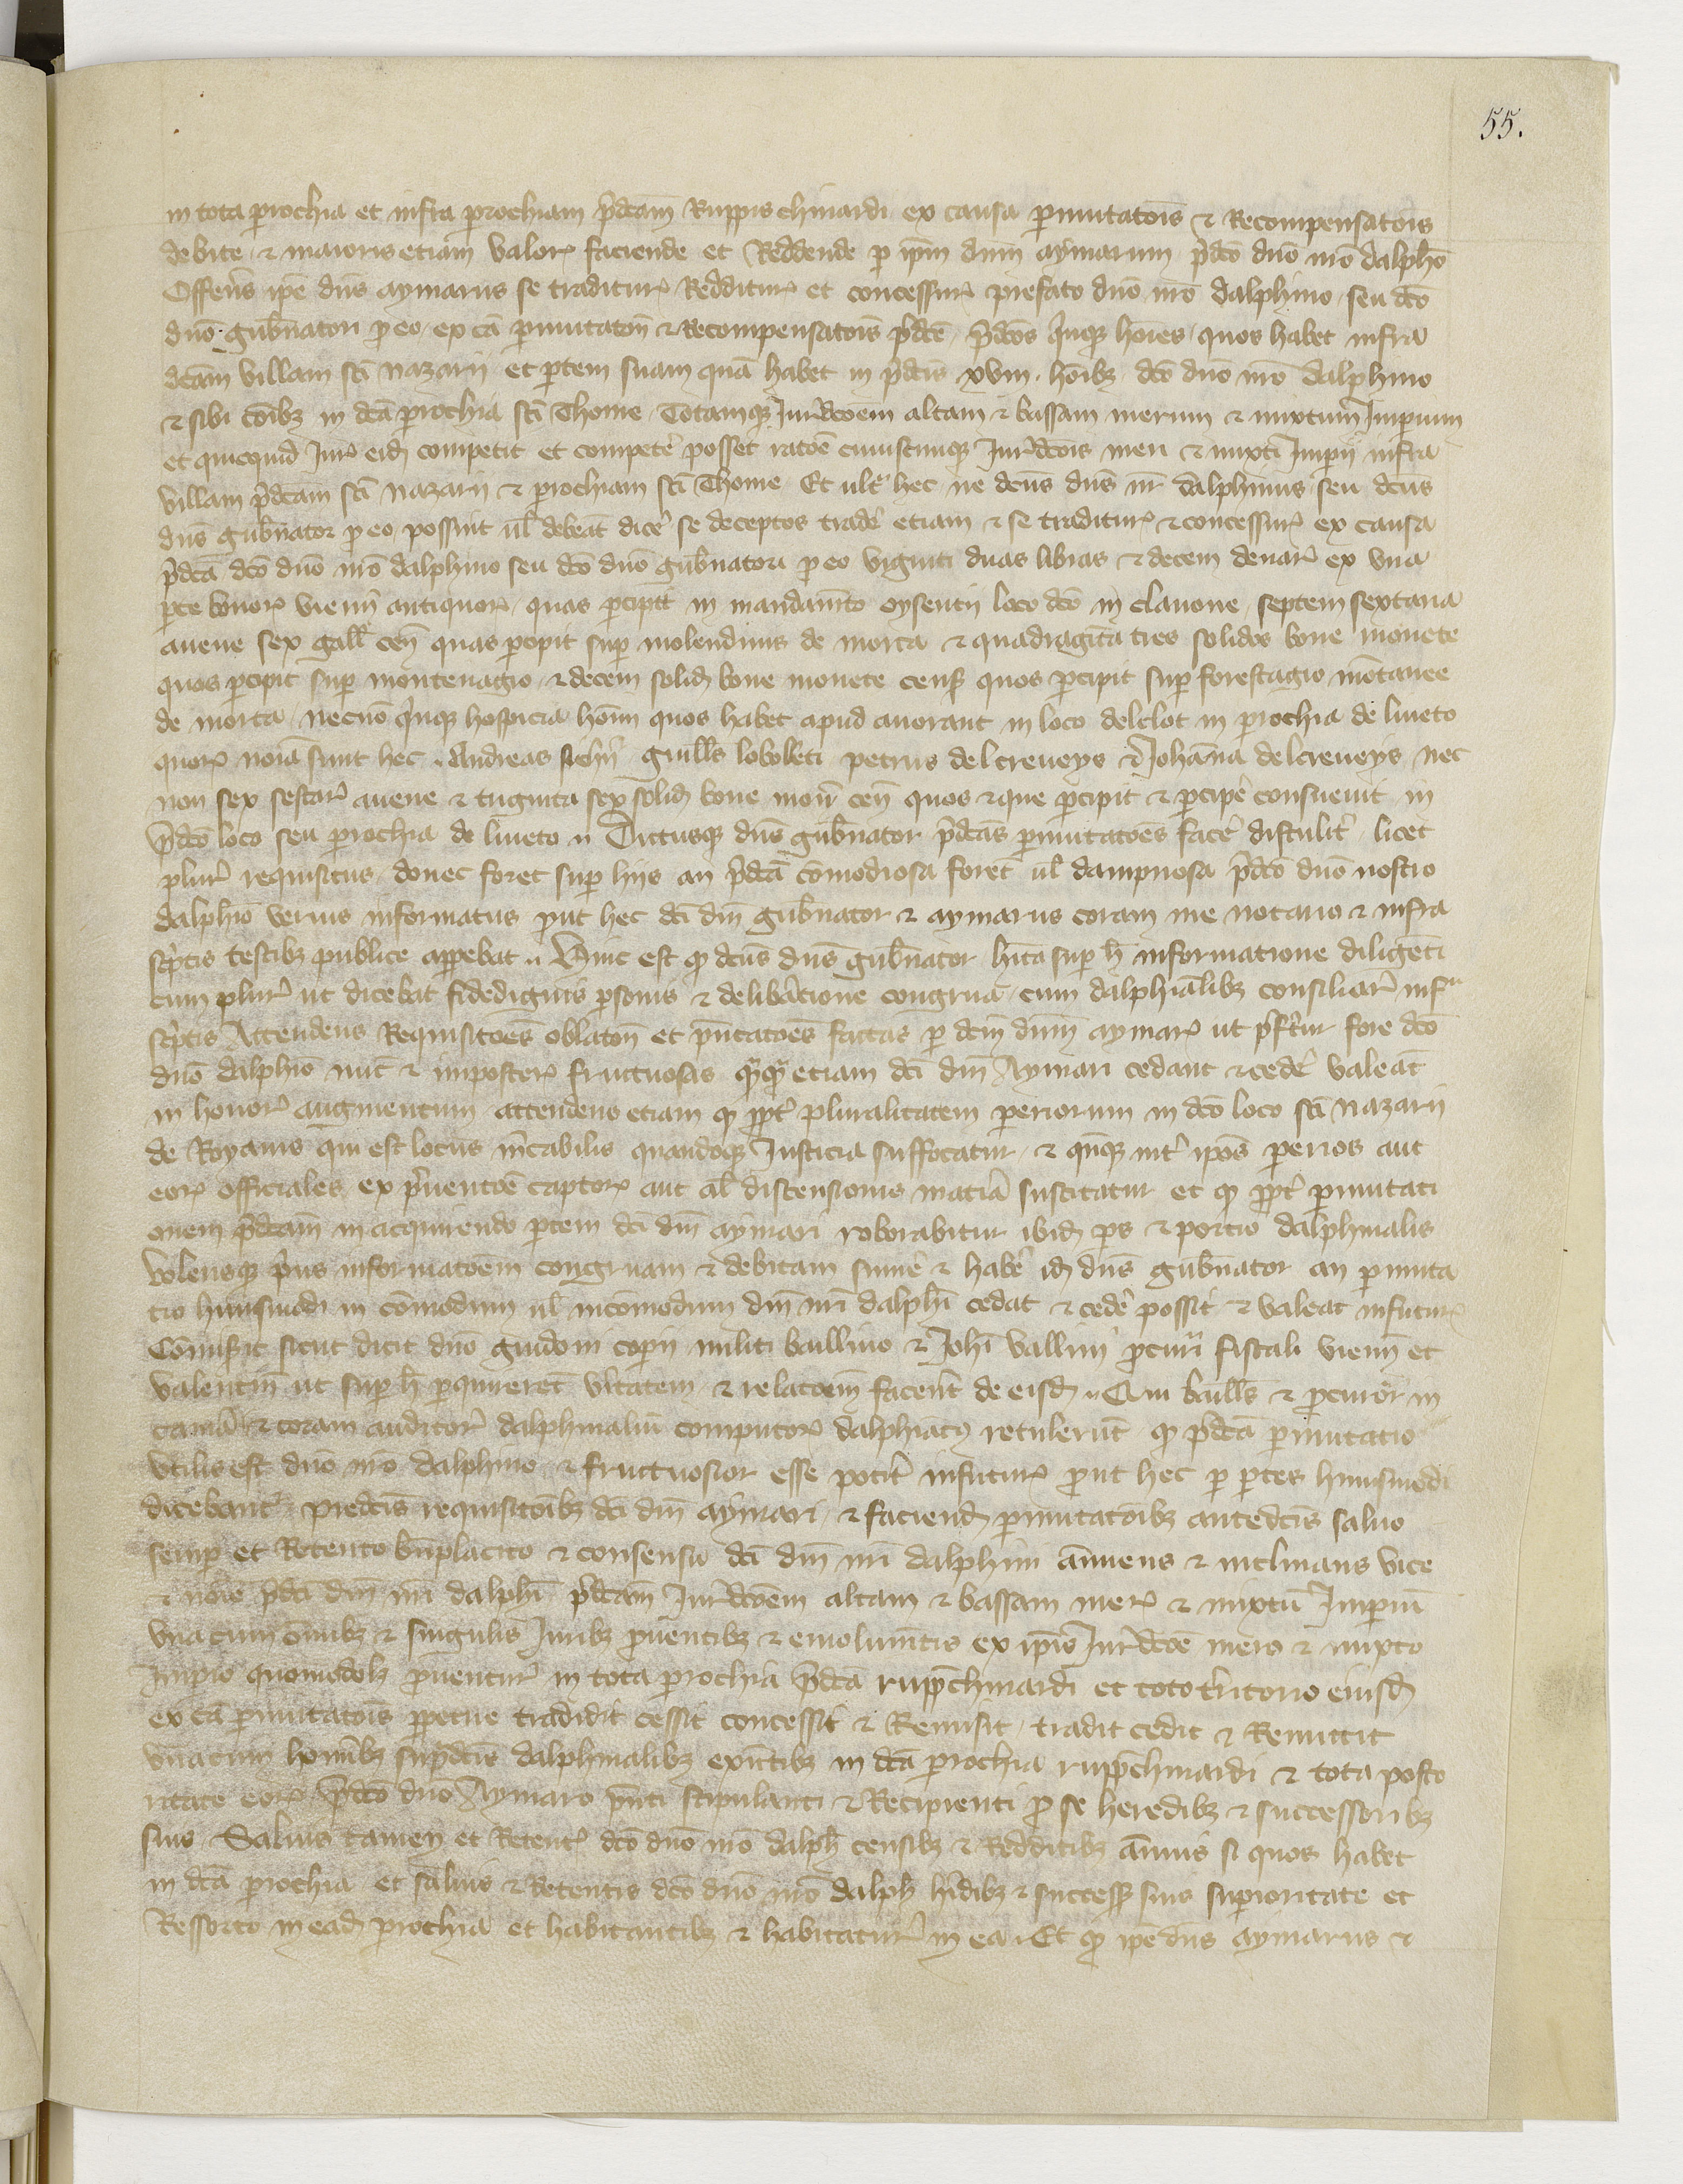 55.
in tota prochia et infra prochiam p̄dcām Ruppis chinardi ex causa pmutatois & Recompensatōis
debite & maioris etiam valoꝝ faciende et Reddende p ip̄m dn̄m aymarum p̄dc̄o dn̄o nr̄o dalph̄o
Offerēs ip̄e dn̄s aymarus se traditurꝝ Redditurꝝ et concessurꝝ prefato dn̄o nr̄o dalphino seu dc̄o
dn̄o gub̄natori p eo ex cā pmutatoīs & Recompensatōis p̄dc̄e p̄dc̄os q̄nqꝫ hōies quos habet infra
dc̄am villam sc̄i nazarij et ptem suam quā habet in p̄dc̄is xviij hōibꝫ dc̄o dn̄o nr̄o dalphino
& sibi cōibꝫ in dc̄a prochia sc̄i Thome Totamqꝫ Jurdc̄oem altam & bassam merum & mixtum Imperium
et quicquid Jurꝭ eidꝫ competit et compete᷒ posset rat̄oe cuiuscunqꝫ Jurdc̄ois meri & mixti Imperij infra
villam p̄dc̄am sc̄i nazarij & prochiam sc̄i Thome Et ult᷒ hec ne dc̄us dn̄s nr̄ dalphinus seu dc̄us
dn̄s gub̄nator p eo possint ul̄ debeāt dice᷒ se deceptos trade᷒ etiam & se traditurꝝ & concessurꝝ ex causa
p̄dc̄a dc̄o dn̄o nr̄o dalphino seu dc̄o dn̄o gub̄natori p eo viginti duas libras & decem denar᷒ ex vna
pte bonorꝝ vienn̄ antiquorꝝ quas pcipit in mandam̄to oysencij loco dc̄o in clauone septem sextaria
auene sex gall̄ cen̄ quas pcipit sup molendinis de morta & quadraginta tres solidos bone monete
quos pcipit sup montenagio & decem solidꝫ bone monete cens̄ quos pcipit sup forestagio mōtanee
de morta necnō q̄nqꝫ hospicia hōim quos habet apud auorant in loco delclot in prochia de liueto
quorꝝ noīa sunt hec Andreas guill̄s loboleti petrus delcreueys & Johāna delcreueys nec
non sex sestar᷒ auene & triginta sex solidꝫ bone mon̄ cen̄ quos & que pcipit & pcipe᷒ consueuit in
p̄dc̄o loco seu prochia de liueto Dictusqꝫ dn̄s gub̄nator p̄dc̄as pmutatōes face᷒ distulit licet
plur᷒ requisitus donec foret sup hijs an p̄dc̄a cōmodiosa foret ul̄ dampnosa p̄dc̄o dn̄o nostro
dalph̄io verius informatus put hec dc̄i dn̄i gub̄nator & aymarus coram me notario & infra
sc̄ptis testibꝫ publice appebat Hinc est qꝫ dc̄us dn̄s gub̄nator hīta sup h̄ informatione diligēti
cum plur᷒ ut dicebat fidedignis psonis & delib̄atione congrua cum dalphīalibꝫ consiliar᷒ infra
sc̄ptis Attendens Requisitōes oblatōn et p̄ntatōes factas p dc̄m dn̄m aymarꝝ ut p̄fertur fore dc̄o
dn̄o dalph̄io nūc & imposterꝝ fructuosas etiam dc̄i dn̄i Aymari cedant & cede᷒ valeāt
in honor᷒ augmentum attendens etiam qꝫ ppt᷒ pluralitatem periorum in dc̄o loco sc̄i nazarij
de Royanis qui est locus m̄cabilis quandoqꝫ Justicia suffocatur & qn̄qꝫ int᷒ ip̄os perios aut
eorꝝ officiales ex p̄uentōe captorꝝ aut al̄ discensionis matīa suscitatur et qꝫ ppt᷒ pmutati
onem p̄dc̄am in acquirendo ptem dc̄i dn̄i aymari roborabitur ibidꝫ ps & portio dalphinalis
Volensqꝫ p̄us informatōem congruam & debitam sume᷒ & habe᷒ idꝫ dn̄s gub̄nator an pmuta
tio huiusmodi in cōmodum ul̄ incōmodum dn̄i nr̄i dalph̄i cedat & cede᷒ possit & valeat infuturꝝ
Cōmisit sicut dicit dn̄o guidoni copij militi bailliuo & Joh̄i vallini pcur̄i fiscali vienn̄ et
valentin̄ ut sup h̄ pquirerēt v̄itatem & relatōem facerēt de eisdꝫ Qui baill̄s & pcurōr in
cam̄a & coram auditor᷒ dalphinaliū computorꝝ dalphiat̄ꝫ retulerūt qꝫ p̄dc̄a pmutatio
vtilis est dn̄o nr̄o dalphino & fructuosior esse pot̄it infuturꝝ put hec p ptes huiusmodi
dicebant᷒ predc̄is requisitōibꝫ dc̄i dn̄i aymari & faciendꝫ pmutatōibꝫ antedc̄is saluo
semp et Retento bn̄placito & consensu dc̄i dn̄i nr̄i dalphini ānuens & inclinans vice
& noīe p̄dc̄i dn̄i nr̄i dalph̄i p̄dc̄am Jurdc̄oem altam & bassam merꝝ & mixtū Imperiū
vnacum om̄ibꝫ & singulis Juribꝫ puentibꝫ & emolum̄tis ex ip̄is Jurdc̄oe mero & mixto
Imperio quomodol̄ꝫ puentur᷒ in tota prochia p̄dc̄a rupp̄chinardi et toto t̄ritorio eiusdꝫ
ex cā pmutatōis ppetue tradidit cessit concessit & Remisit tradit cedit & Remittit
vnacum hominibꝫ sup̄dc̄is dalphinalibꝫ exn̄tibꝫ in dc̄a prochia rupp̄chinardi & tota poste
ritate eorꝝ p̄dc̄o dn̄o Aymaro p̄nti stipulanti & Recipienti p se heredibꝫ & successoribꝫ
suis Saluis tamen et Retent᷒ dc̄o dn̄o nr̄o dalph̄ censibꝫ & Redditibꝫ ānuis si quos habet
in dc̄a prochia et saluis & Retentis dc̄o dn̄o nr̄o dalph̄ h̄edibꝫ & success̄ suis superioritate et
Ressorto in eadꝫ prochia et habitantibꝫ & habitatur᷒ in ea Et qꝫ ip̄e dn̄s aymarus &